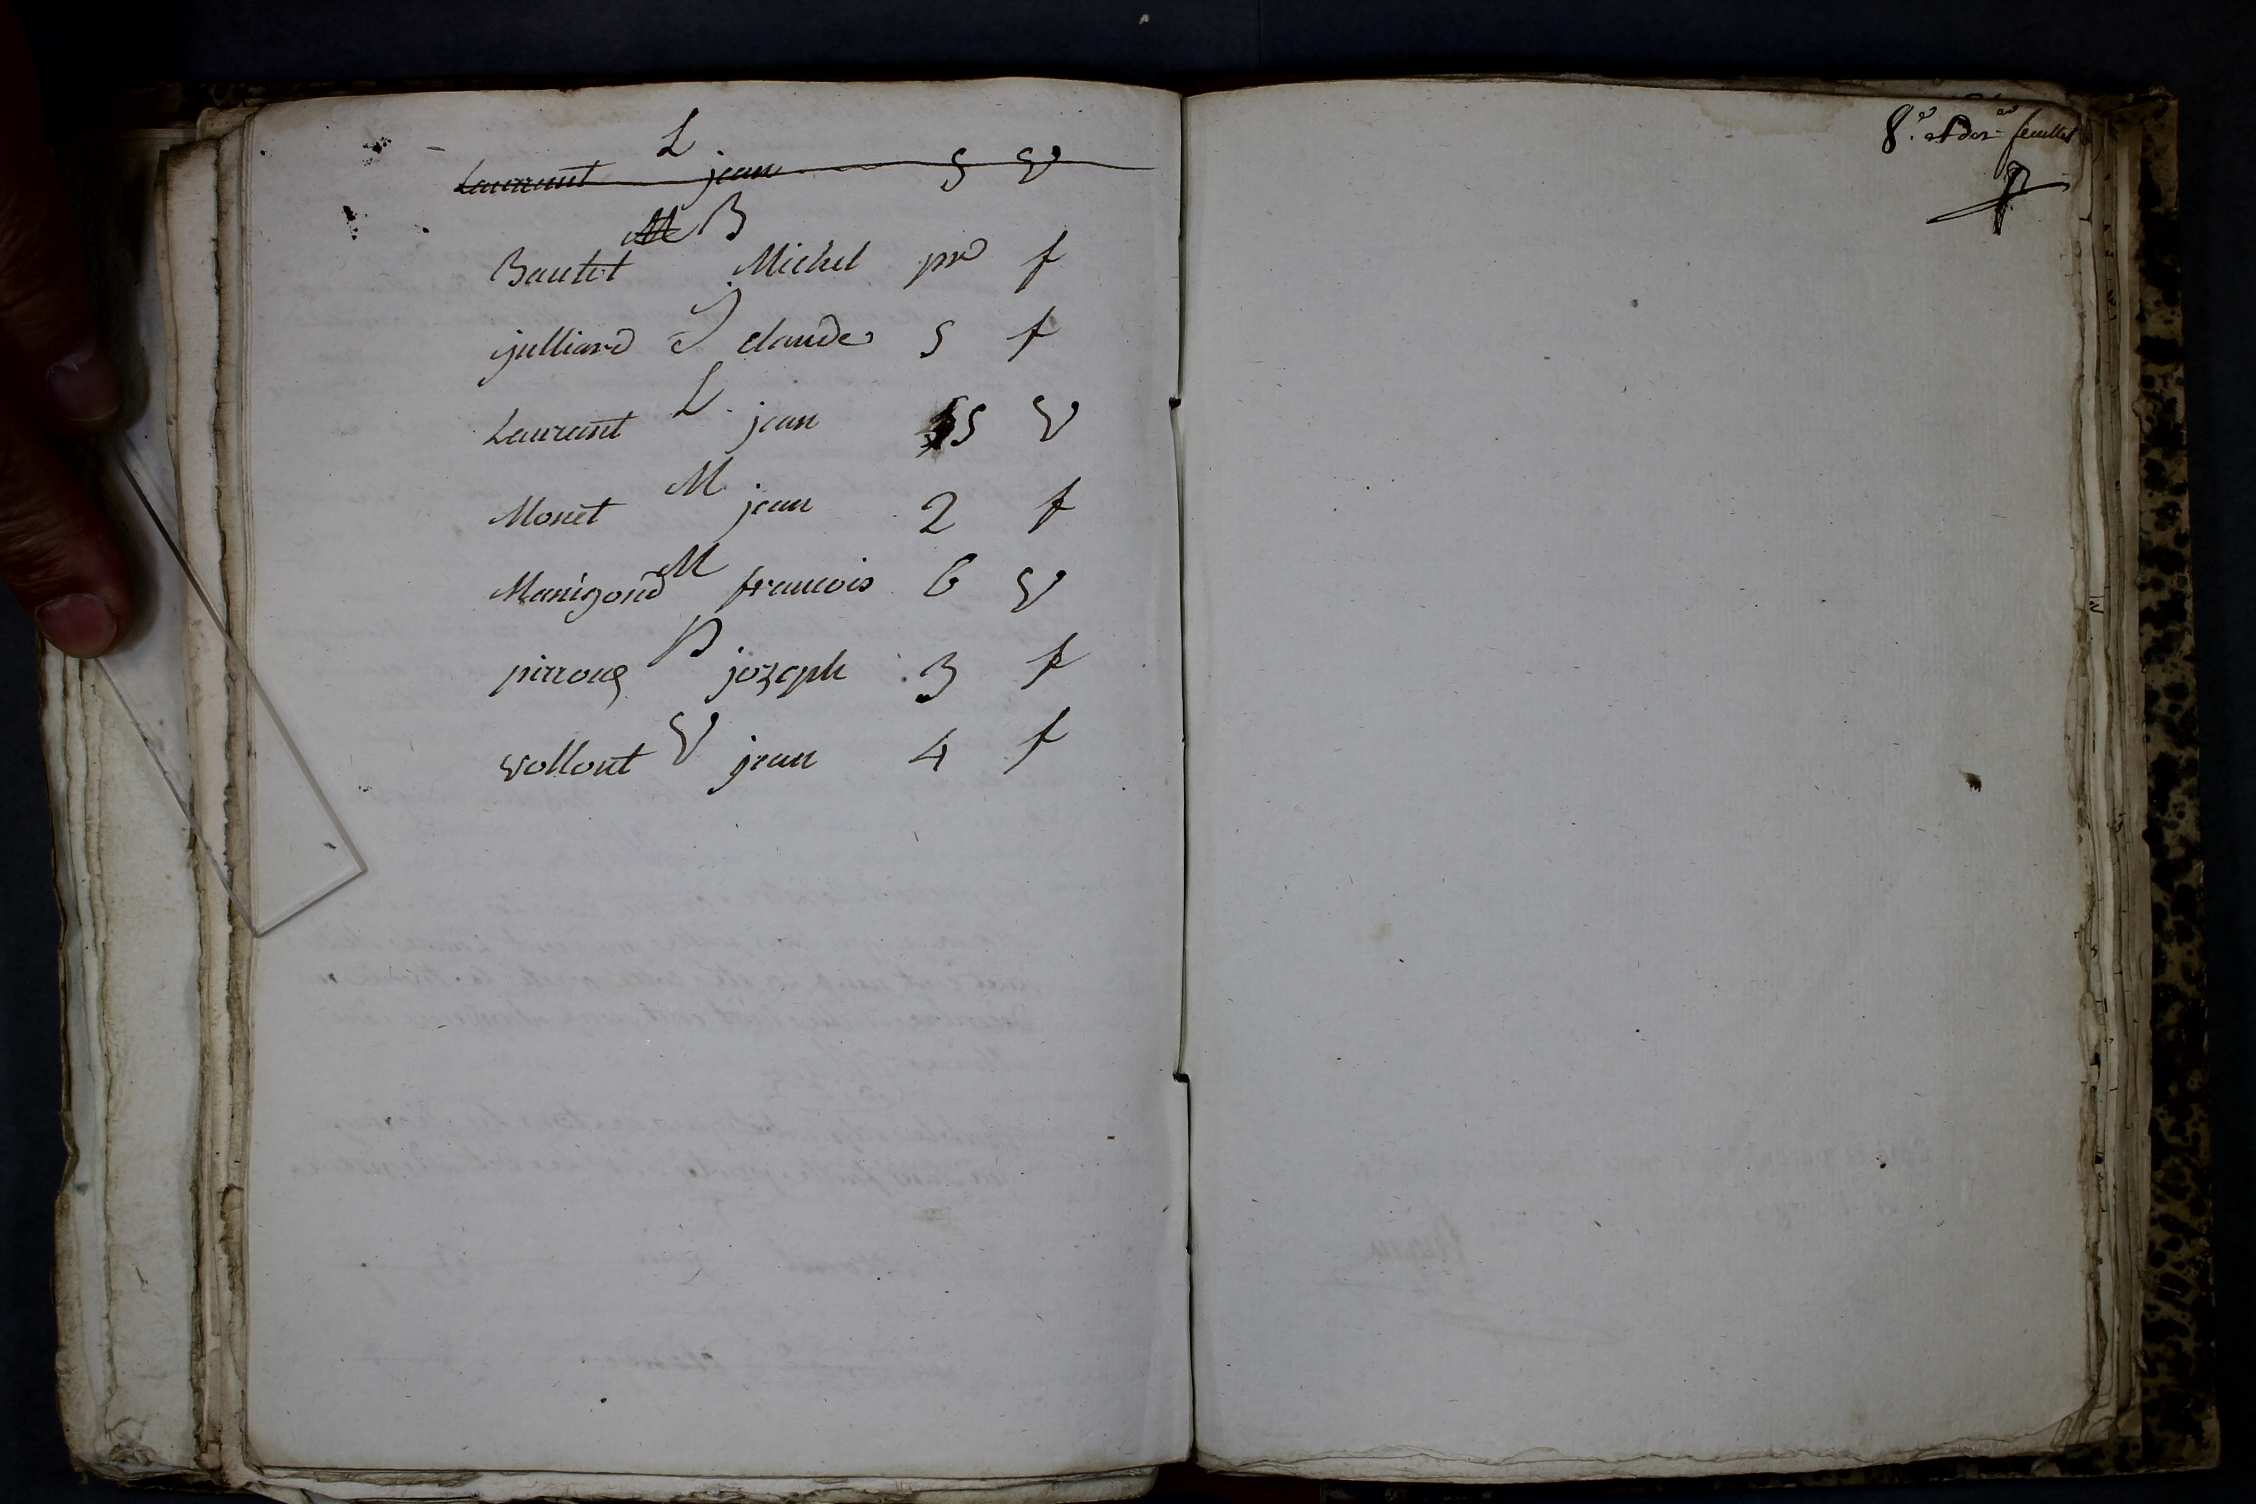 L
Laurant jean 5 V
M B
Bautet Michel pr f
J
julliard claude 5 f
L
Laurant jean 5 V
M
Monet jean 2 f
M
Manigond francois 6 V
P
pirroud jozeph 3 f
V
vollont jean 4 f
8.e et der.er feuillet